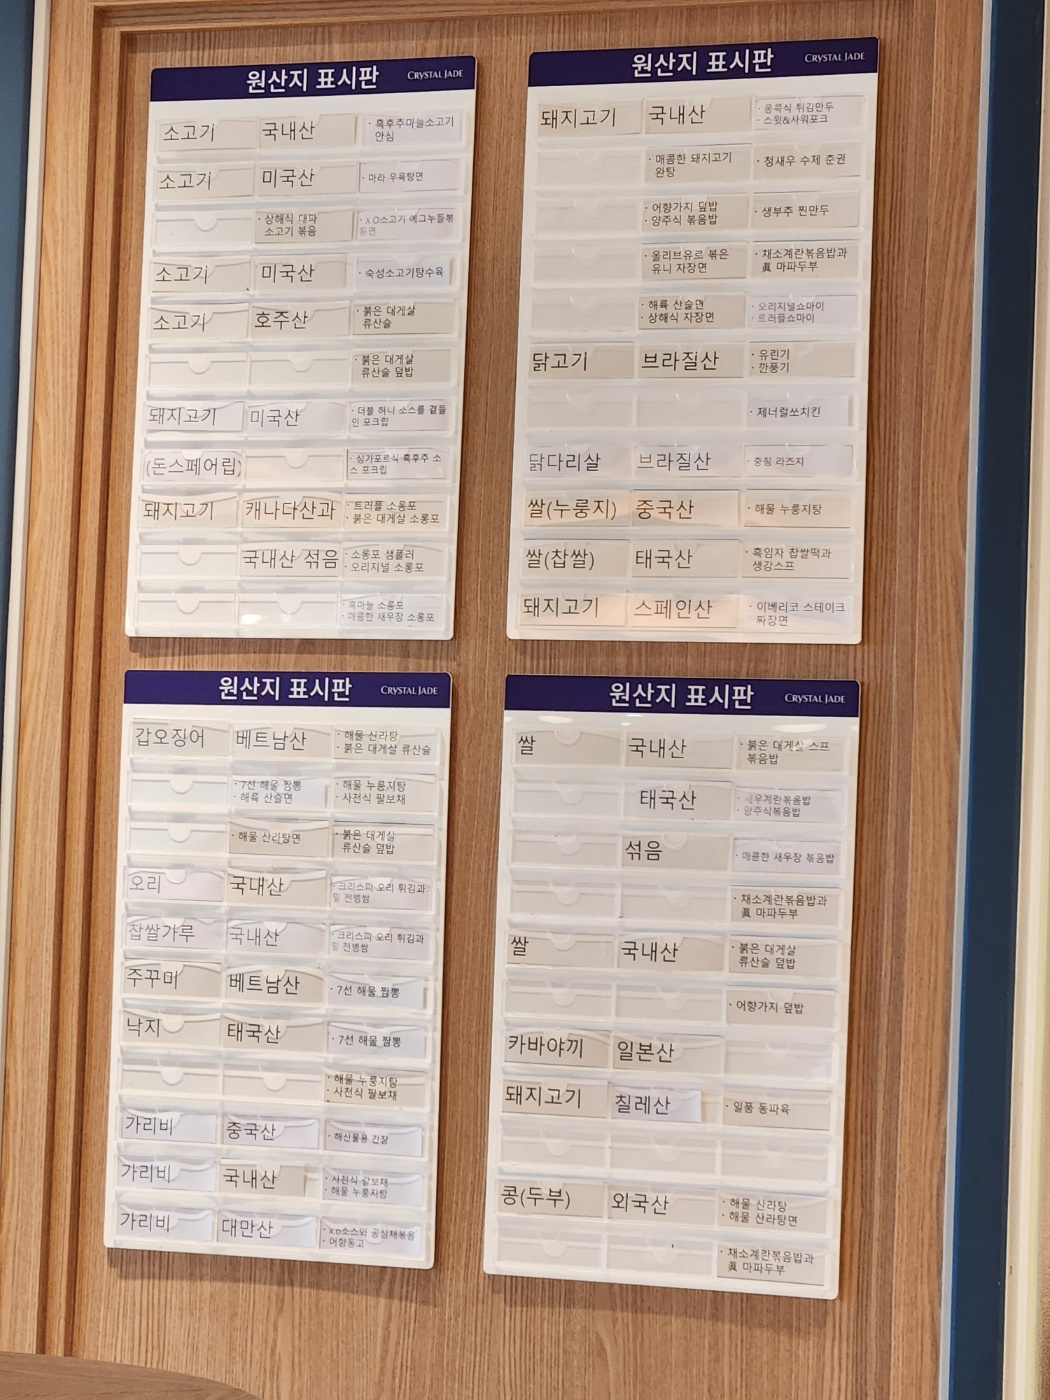 원산지 표시판 CRYSTAL JADE
소고기 국내산 · 흑후추마늘소고기
안심
소고기 미국산 · 마라 우육탕면
· 상해식 대파
소고기 볶음
· XO소고기 에그누들볶
음면
소고기 미국산 · 숙성소고기탕수육
소고기 호주산 · 붉은 대게살
류산슬
· 붉은 대게살
류산슬 덮밥
돼지고기 미국산 · 더블 허니 소스를 곁들
인 포크립
(돈스페어립) · 싱가포르식 흑후추 소
스 포크립
돼지고기 캐나다산과 · 트러플 소롱포
· 붉은 대게살 소롱포
국내산 섞음 · 소롱포 샘플러
· 오리지널 소롱포
· 흑마늘 소롱포
· 매콤한 새우장 소롱포
원산지 표시판 CRYSTAL JADE
돼지고기 국내산 · 홍콩식 튀김만두
· 스윗&사워포크
· 매콤한 돼지고기
완탕
· 정새우 수제 춘권
· 어향가지 덮밥
· 양주식 볶음밥
· 생부추 찐만두
· 올리브유로 볶은
유니 자장면
· 채소계란볶음밥과
眞 마파두부
· 해륙 산슬면
· 상해식 자장면
· 오리지널쇼마이
· 트러플쇼마이
닭고기 브라질산 · 유린기
· 깐풍기
· 제너럴쏘치킨
닭다리살 브라질산 · 충칭 라즈지
쌀(누룽지) 중국산 · 해물 누룽지탕
쌀(찹쌀) 태국산 · 흑임자 찹쌀떡과
생강스프
돼지고기 스페인산 · 이베리코 스테이크
짜장면
원산지 표시판 CRYSTAL JADE
갑오징어 베트남산 · 해물 신라탕
· 붉은 대게살 류산슬
· 7선 해물 짬뽕
· 해륙 산슬면
· 해물 누룽지탕
· 사천식 팔보채
· 해물 산라탕면
· 붉은 대게살
류산슬 덮밥
오리 국내산 · 크리스피 오리 튀김과
밀 전병쌈
찹쌀가루 국내산 · 크리스피 오리 튀김과
밀 전병쌈
주꾸미 베트남산 · 7선 해물 짬뽕
낙지 태국산 · 7선 해물 짬뽕
· 해물 누룽지탕
· 사천식 팔보채
가리비 중국산 · 해산물용 간장
가리비 국내산 · 사천식 팔보채
· 해물 누룽지탕
가리비 대만산 · XO소스와 공심채볶음
· 어향동고
원산지 표시판 CRYSTAL JADE
쌀 국내산 · 붉은 대게살 스프
볶음밥
태국산 · 새우계란볶음밥
· 양주식볶음밥
섞음 · 매콤한 새우장 볶음밥
· 채소계란볶음밥과
眞 마파두부
쌀 국내산 · 붉은 대게살
류산슬 덮밥
· 어향가지 덮밥
카바야끼 일본산
돼지고기 칠레산 · 일품 동파육
콩(두부) 외국산 · 해물 신라탕
· 해물 산라탕면
· 채소계란볶음밥과
眞 마파두부